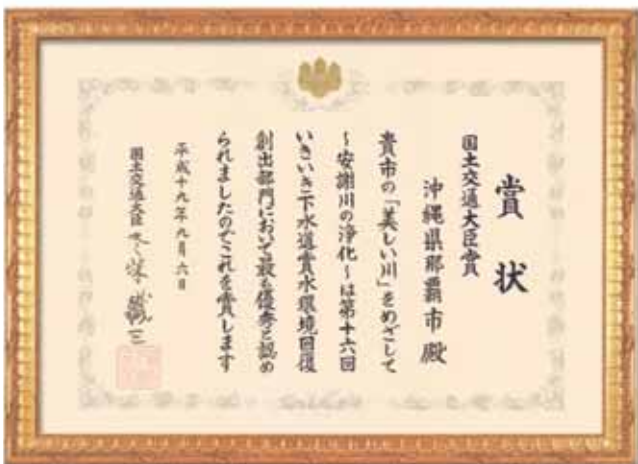 賞状
国土交通大臣賞
沖縄県那覇市殿
貴市の「美しい川」をめざして
～安謝川の浄化～は第十六回
いきいき下水道賞水環境回復
創出部門において最も優秀と認め
られましたのでこれを賞します
平成十九年九月六日
国土交通大臣 冬柴鐵三